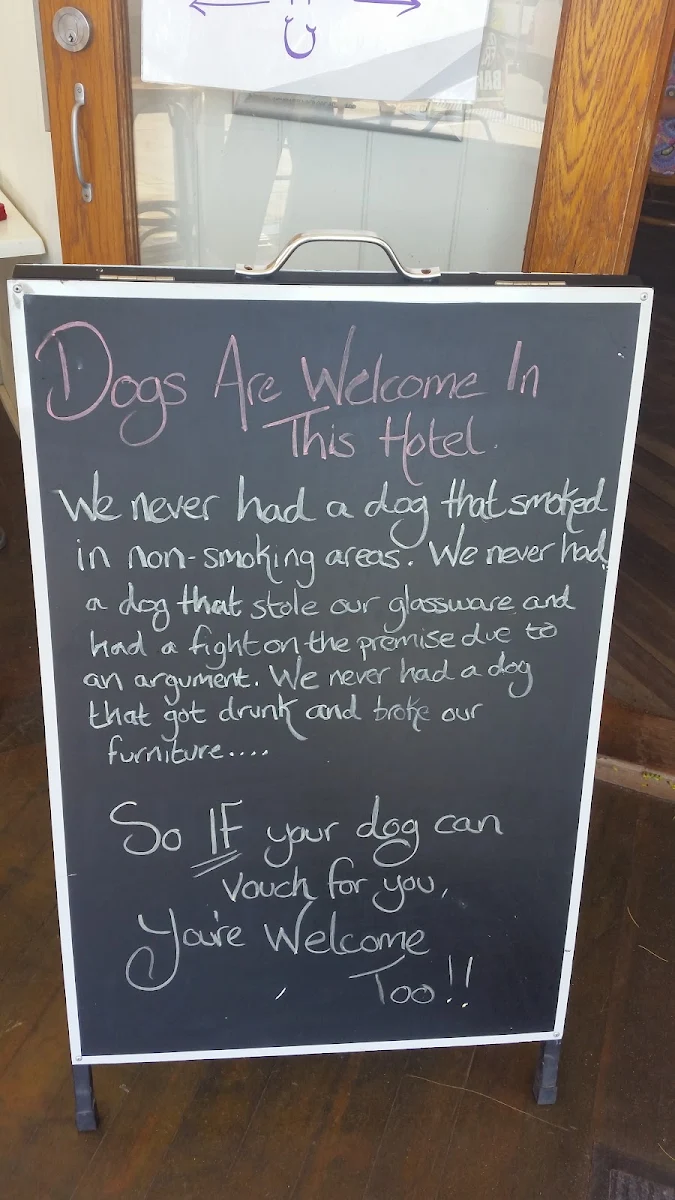 Dogs Are Welcome In
This Hotel.
We never had a dog that smoked
in non-smoking areas. We never had
a dog that stole our glassware and
had a fight on the premise due to
an argument. We never had a dog
that got drunk and broke our
furniture....
So IF your dog can
vouch for you,
You're Welcome
Too!!